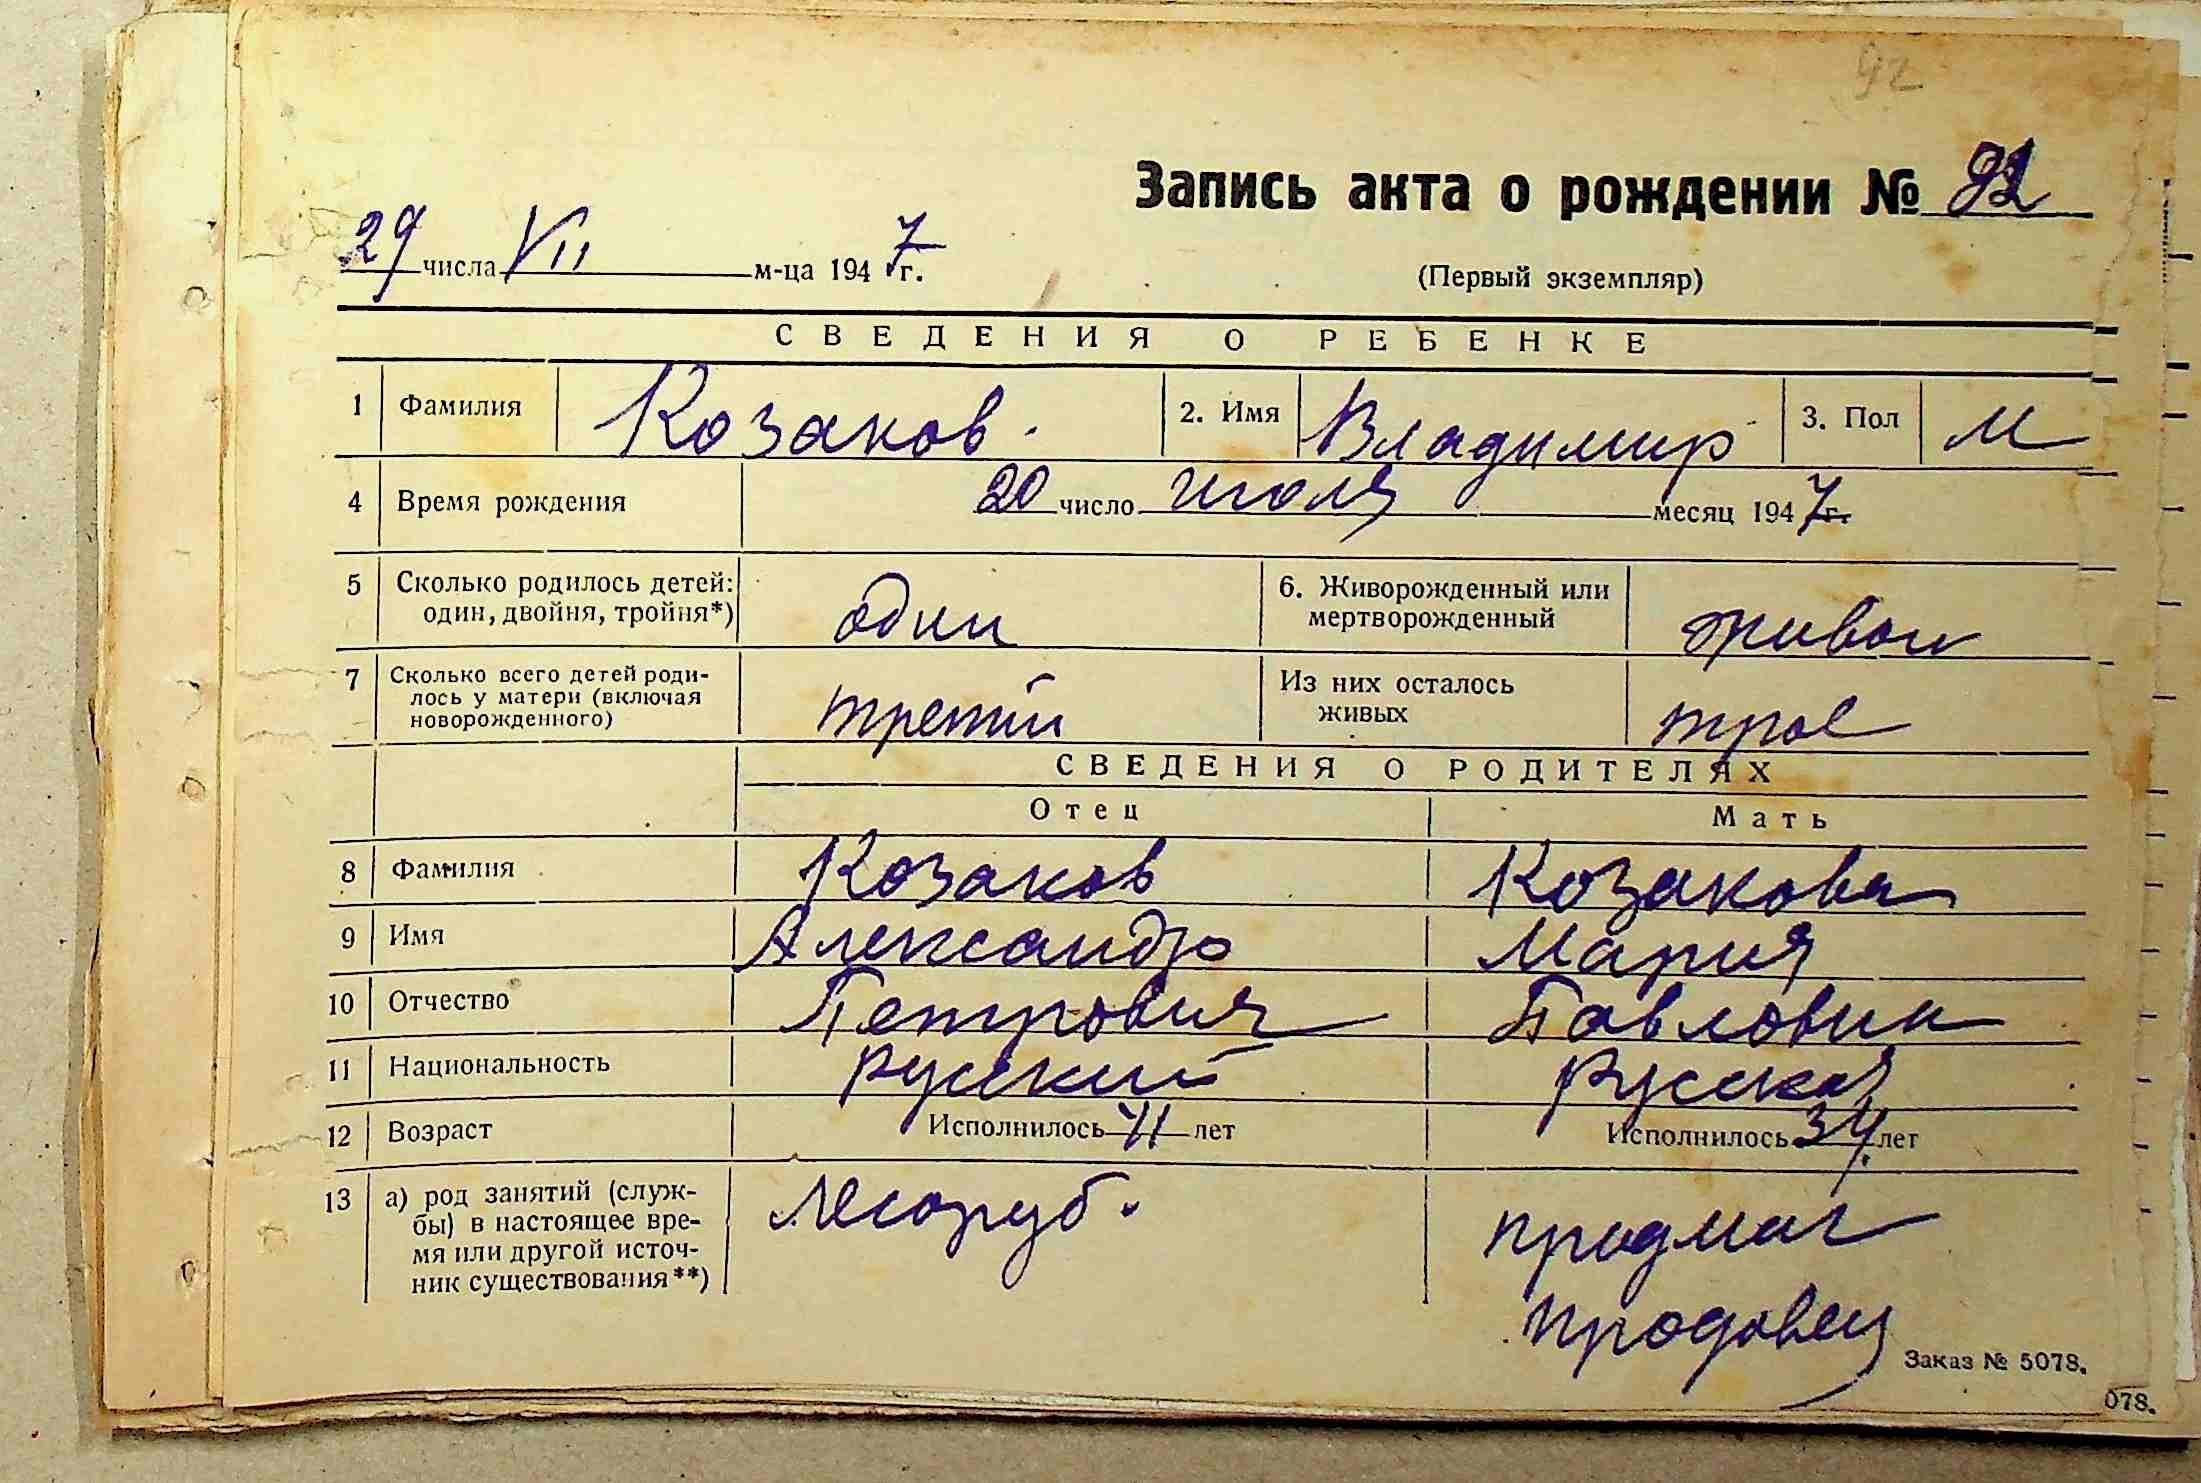 92
Запись акта о рождении № 92
29 числа VII м-ца 1947 г.
(Первый экземпляр)
СВЕДЕНИЯ О РЕБЕНКЕ
1 Фамилия Козаков. 2. Имя Владимир 3. Пол М
4 Время рождения 20 число июля месяц 1947 г.
5 Сколько родилось детей: один 6. Живорожденный или живой
один, двойня, тройня*) мертворожденный
7 Сколько всего детей роди- третий Из них осталось трое
лось у матери (включая живых
новорожденного)
СВЕДЕНИЯ О РОДИТЕЛЯХ
Отец Мать
8 Фамилия Козаков Козакова
9 Имя Александр Мария
10 Отчество Петрович Павловн
11 Национальность Русский Русская
12 Возраст Исполнилось 41 лет Исполнилось 34 лет
13 а) род занятий (служ- Лесоруб. продмаг
бы) в настоящее вре-
мя или другой источ-
ник существования**) продовец
Заказ № 5078.
078.